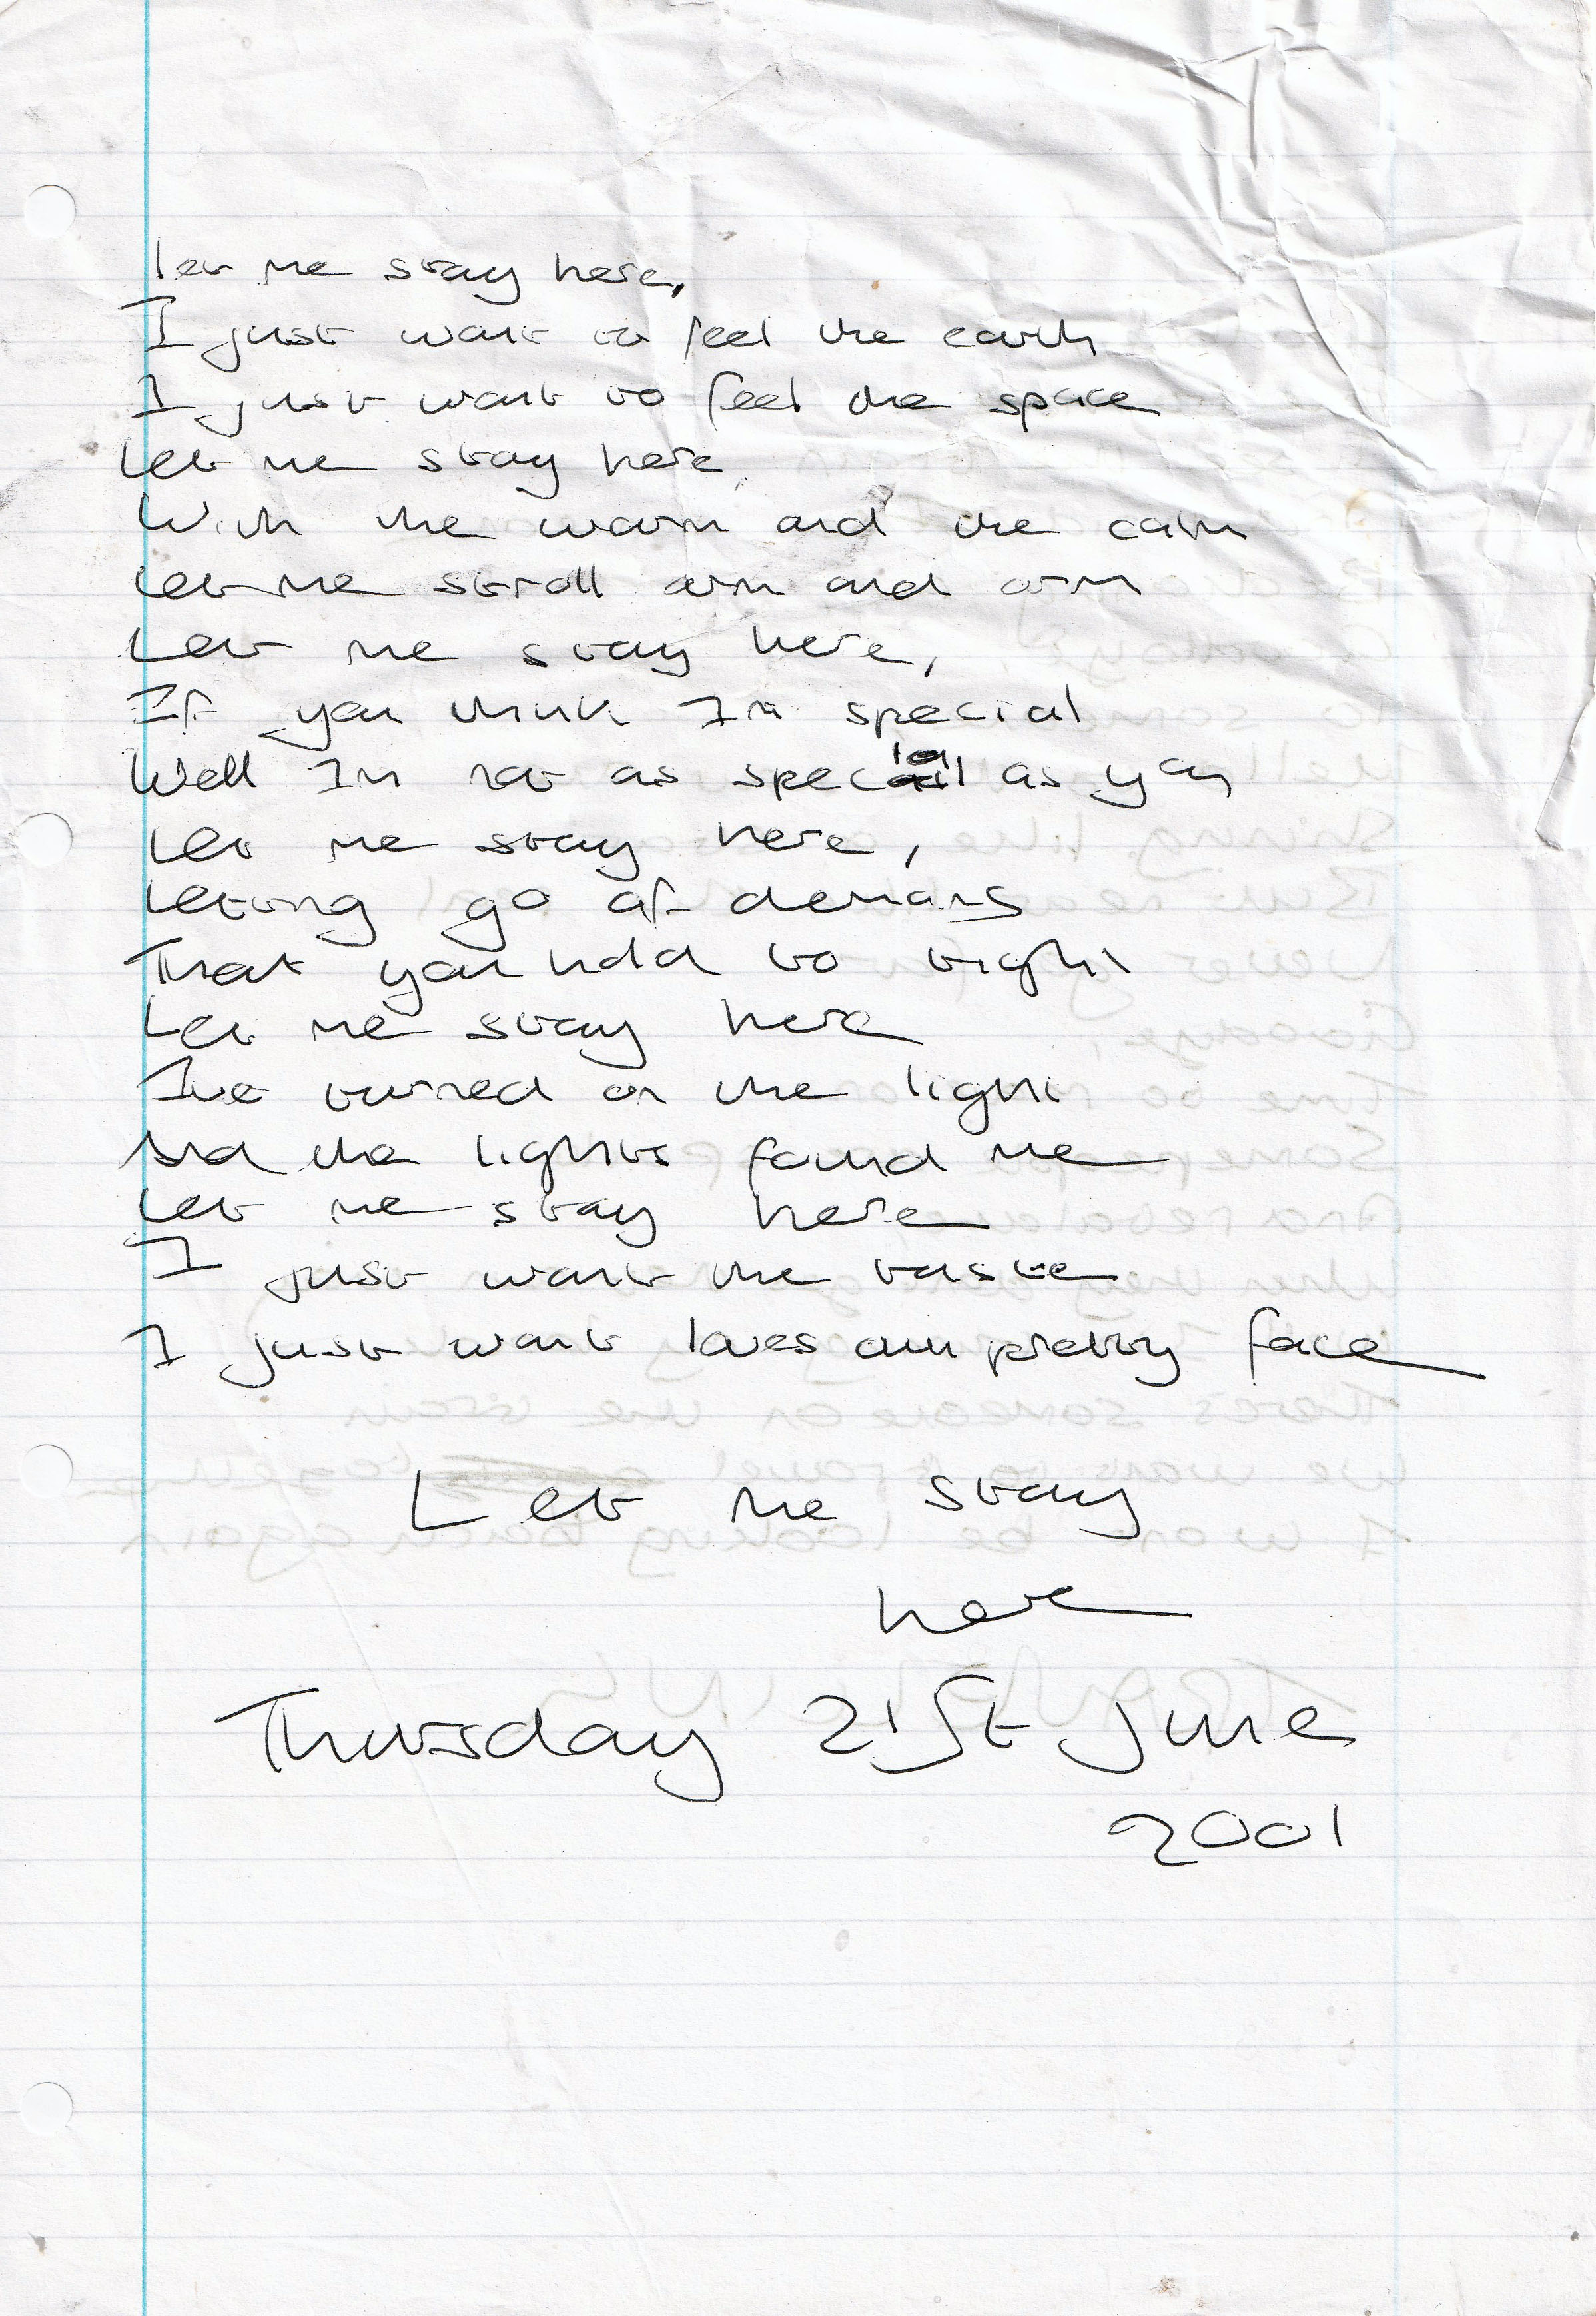 let me stay here,
I just want to feel the earth
I just want to feel the space
Let me stay here,
With the warm and the calm
let me stroll arm and arm
Let me stay here,
If you think Im special
Well Im not as special as you
Let me stay here,
Letting go of demons
That you hold to tight
Let me stay here
Ive turned on the light
And the lights found me
Let me stay here
I just want the taste
I just want loves own pretty face
Let me stay
here
Thursday 21st June
2001